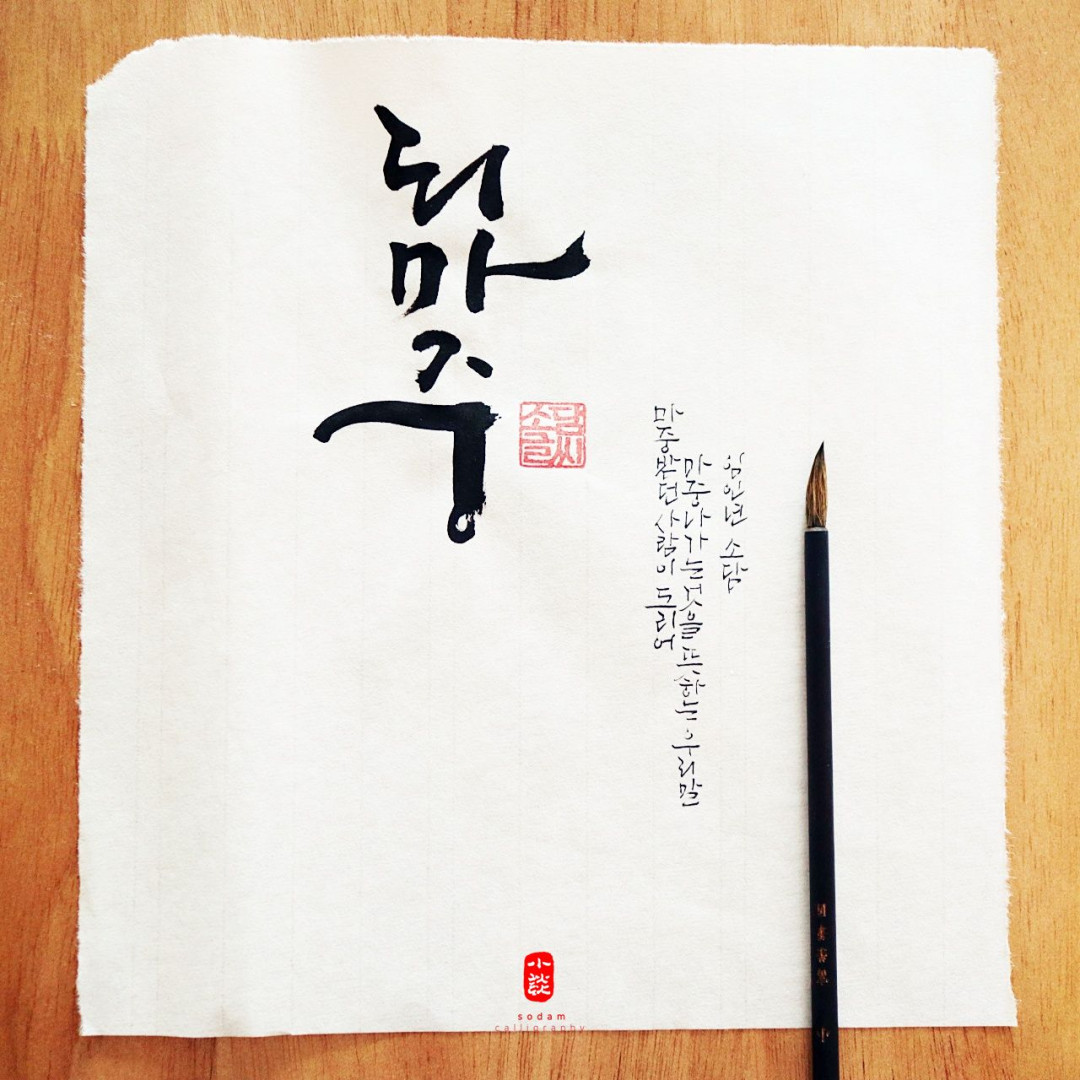 되마중
마중받던사람이 도리어
마중나가는것을뜻하는우리말
임인년 소담
소담글씨
小談
sodam
calligraphy